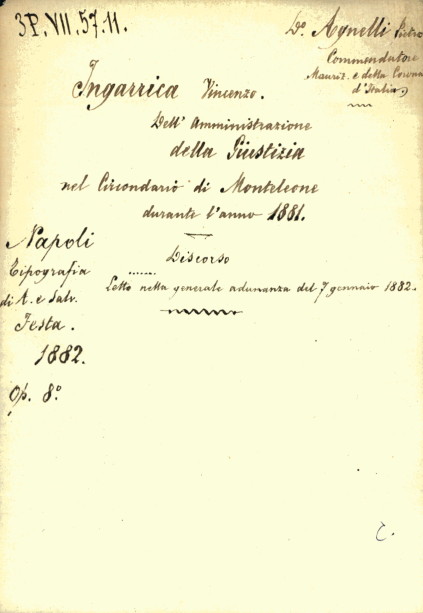 3P.VII.57.11.
Do. Agnelli Pietro
Commendatore
Mauriz. e della Corona
d'Italia)
Ingarrica Vincenzo.
Dell' Amministrazione
della Giustizia
nel Circondario di Monteleone
durante l'anno 1881.
Discorso
Letto nella generale adunanza del 7 gennaio 1882.
Napoli
Tipografia
di A. e Salv.
Festa.
1882.
Op. 8º.
C.